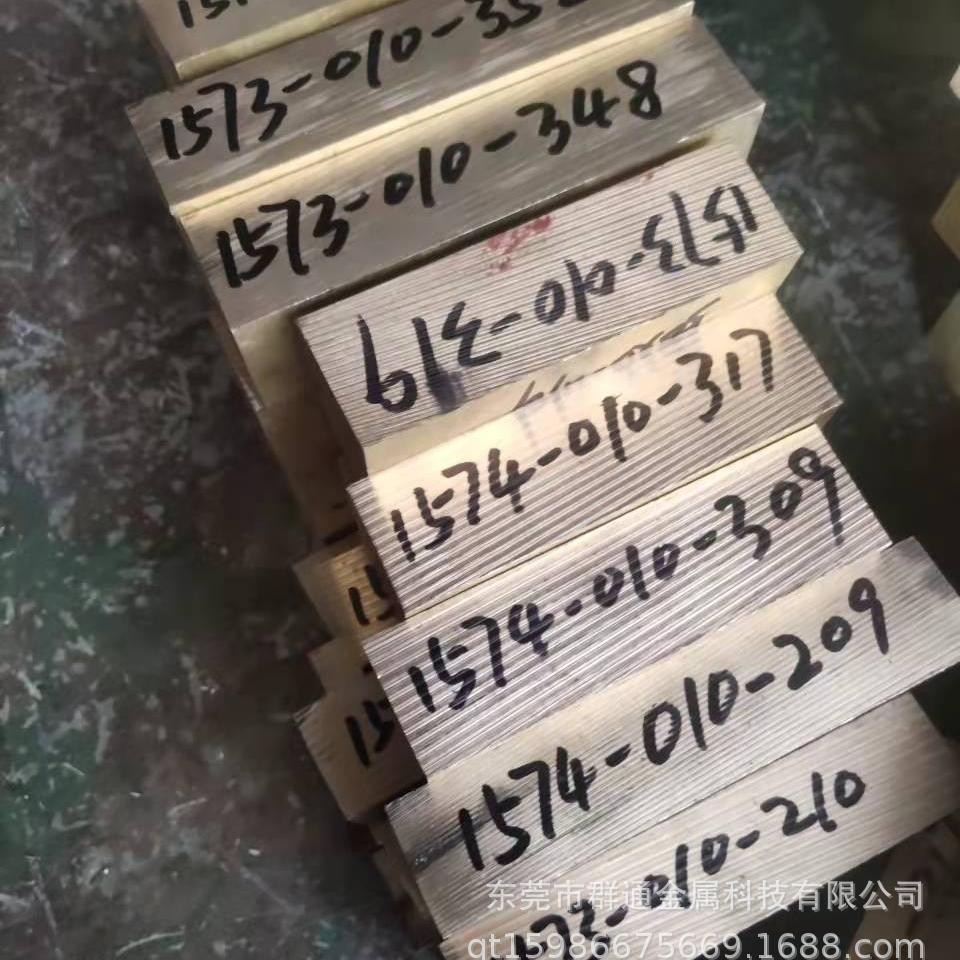 1573-010-35
1573-010-348
1573-010-319
1574-010-317
1574-010-309
1574-010-209
1573-010-210
东莞市群通金属科技有限公司
qt15986675669.1688.com